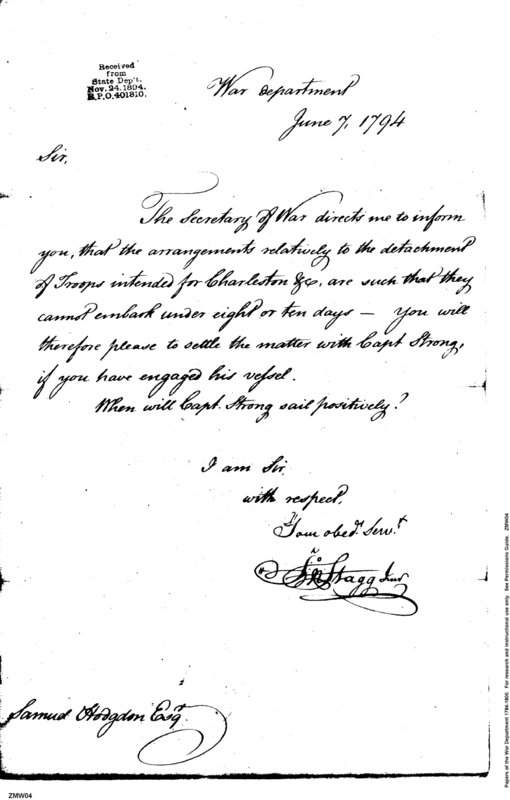 Received
from
State Dep't.
Nov. 24. 1894.
R.P.O. 401810.
War department
June 7, 1794
Sir,
The Secretary of War directs me to inform
you, that the arrangements relatively to the detachment
of Troops intended for Charleston &c, are such that they
cannot embark under eight or ten days — you will
therefore please to settle the matter with Capt Strong,
if you have engaged his vessel.
When will Capt. Strong sail positively?
I am Sir.
with respect.
Your obed.t Serv.t
Jn.o Stagg Junr
Samuel Hodgdon Esq.r
ZMW04
Papers of the War Department 1784-1800. For research and instructional use only. See Permissions Guide. ZMW04